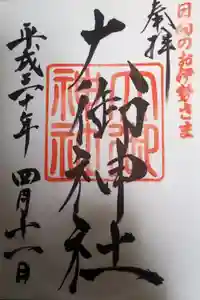 日向のお伊勢さま
奉拝
大御神社
大御神社
平成三十年 四月十一日